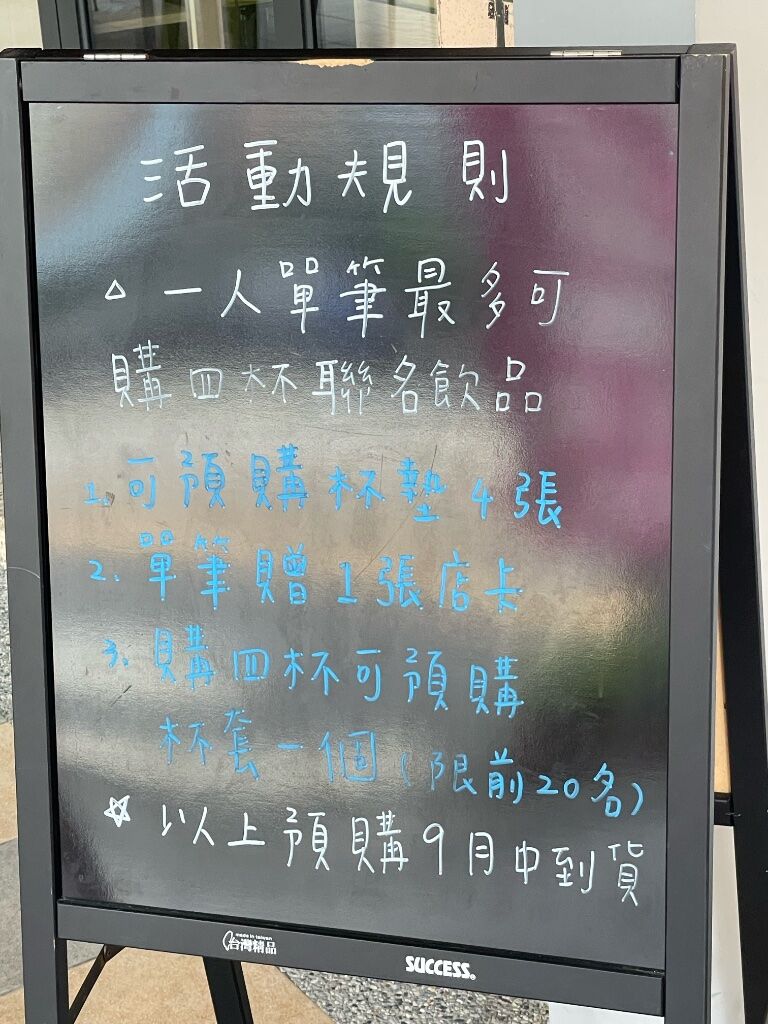 活動規則
△ 一人單筆最多可
購四杯聯名飲品
1. 可預購杯墊4張
2. 單筆贈1張店卡
3. 購四杯可預購
杯套一個(限前20名)
☆ 以上預購9月中到貨
made in taiwan
台灣精品
SUCCESS.